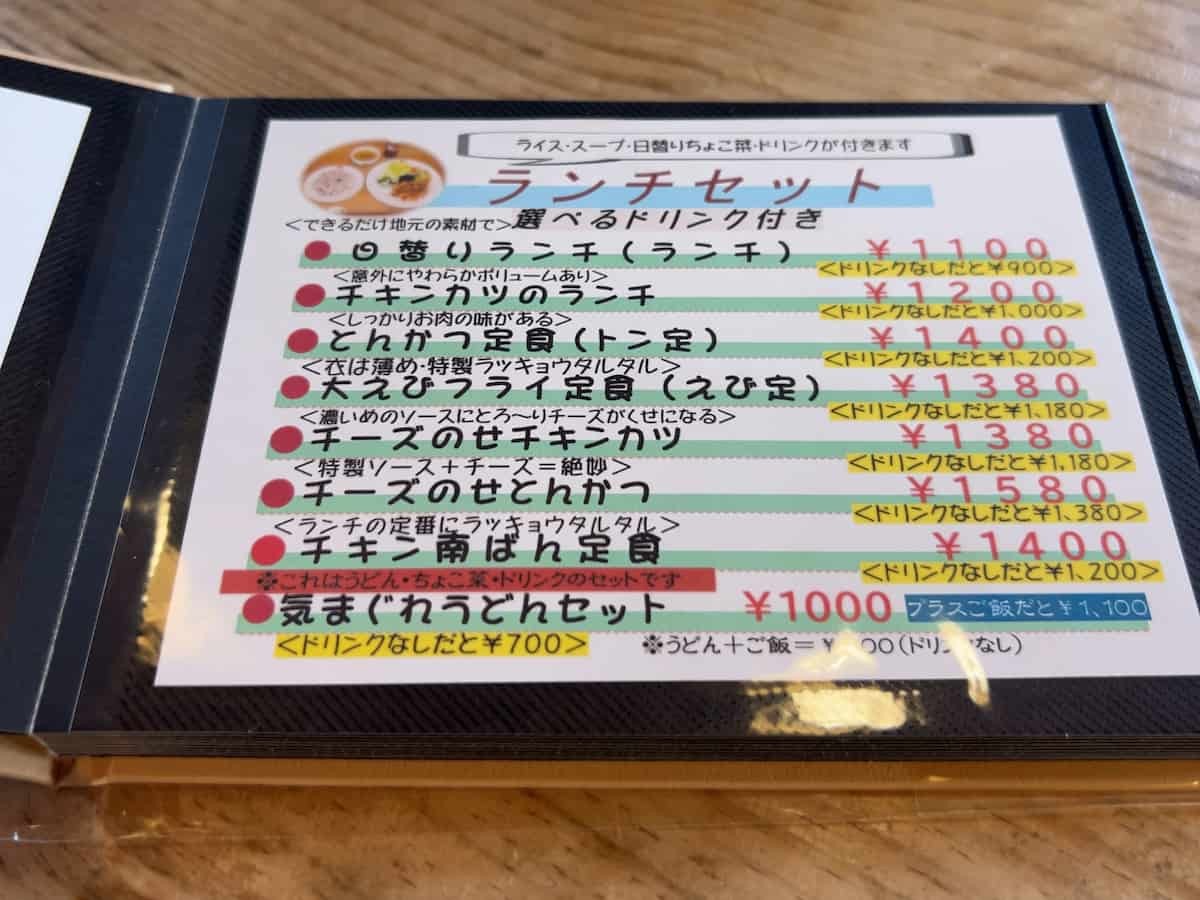 ライス・スープ・日替りちょこ菜・ドリンクが付きます
ランチセット
<できるだけ地元の素材で>選べるドリンク付き
●日替りランチ(ランチ) ¥1100
<ドリンクなしだと¥900>
<意外にやわらかボリュームあり>
●チキンカツのランチ ¥1200
<ドリンクなしだと¥1,000>
<しっかりお肉の味がある>
●とんかつ定食(トン定) ¥1400
<ドリンクなしだと¥1,200>
<衣は薄め・特製ラッキョウタルタル>
●大えびフライ定食(えび定) ¥1380
<ドリンクなしだと¥1,180>
<濃いめのソースにとろ〜りチーズがくせになる>
●チーズのせチキンカツ ¥1380
<ドリンクなしだと¥1,180>
<特製ソース+チーズ=絶妙>
●チーズのせとんかつ ¥1580
<ドリンクなしだと¥1,380>
<ランチの定番にラッキョウタルタル>
●チキン南ばん定食 ¥1400
<ドリンクなしだと¥1,200>
※これはうどん・ちょこ菜・ドリンクのセットです
●気まぐれうどんセット ¥1000 プラスご飯だと¥1,100
<ドリンクなしだと¥700> ※うどん+ご飯=